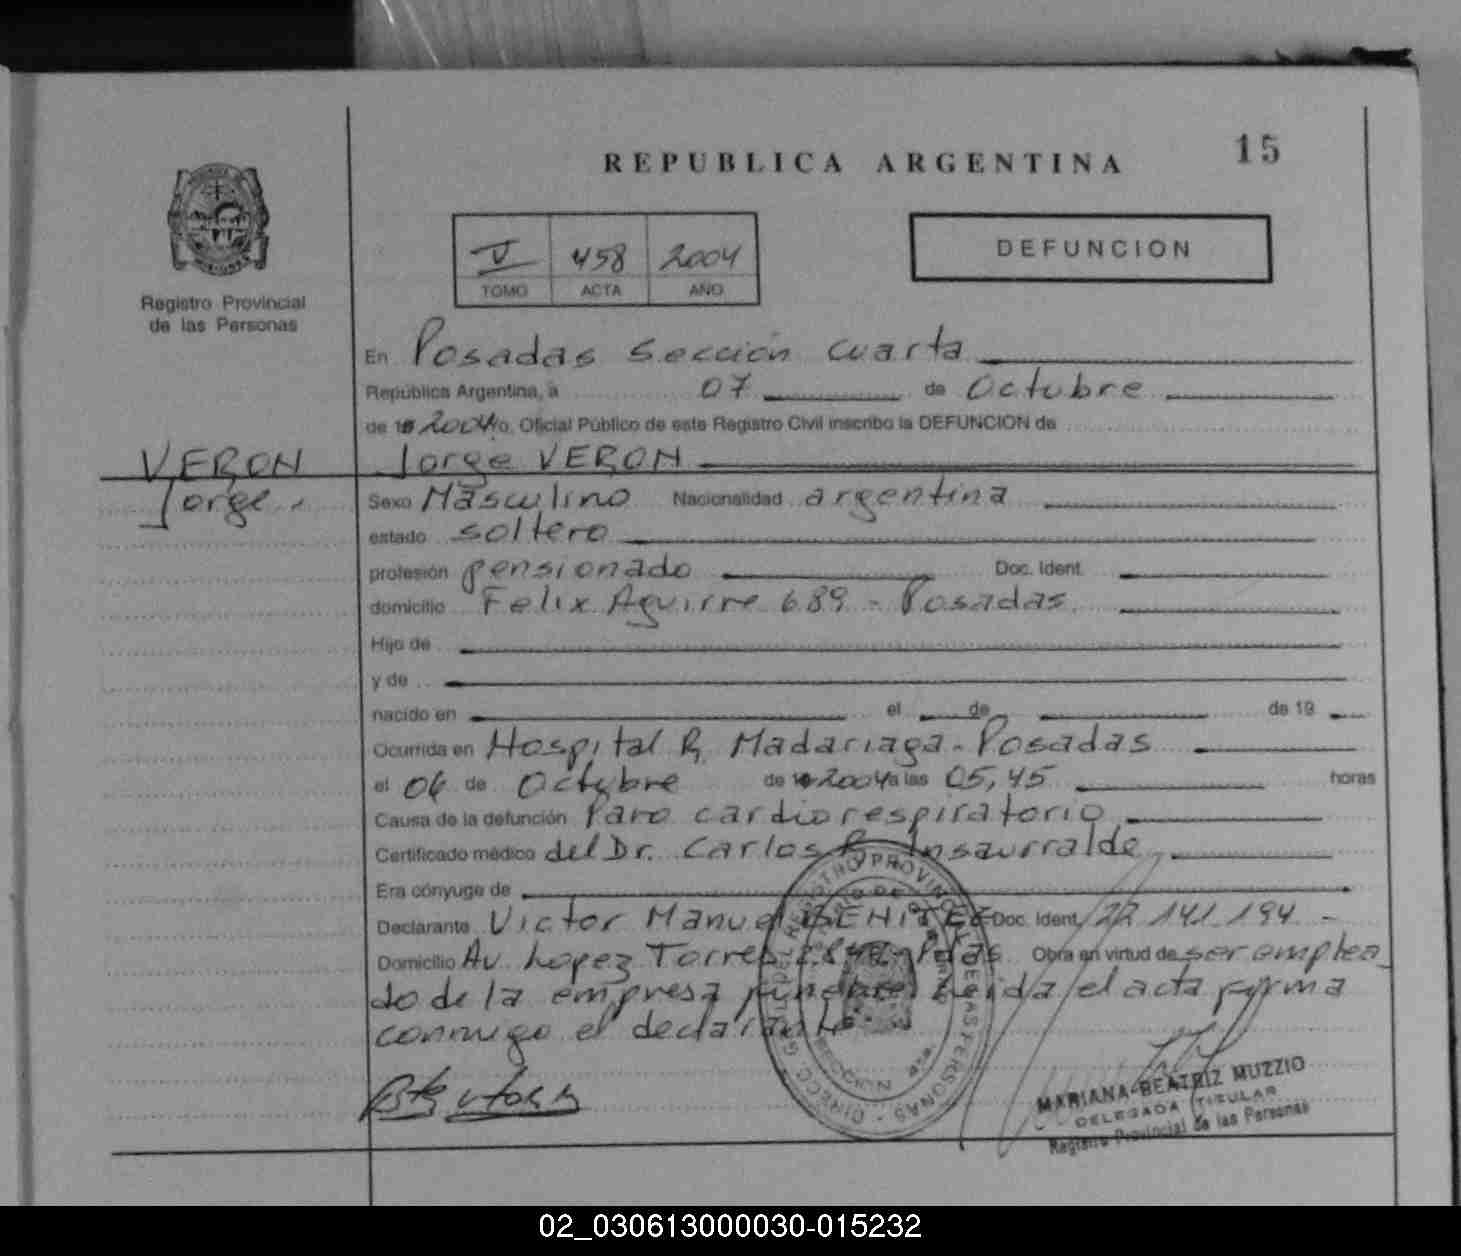 REPUBLICA ARGENTINA
15
V 458 2004
TOMO ACTA AÑO
DEFUNCION
Registro Provincial
de las Personas
En Posadas Sección Cuarta
República Argentina, a 07 de Octubre
de 2004 yo, Oficial Público de este Registro Civil inscribo la DEFUNCION de
VERON
Jorge VERON
Jorge
Sexo Masculino Nacionalidad argentina
estado soltero
profesión pensionado Doc. Ident.
domicilio Felix Aguirre 689 - Posadas
Hijo de
y de
nacido en el de de 19
Ocurrida en Hospital R. Madariaga - Posadas
el 06 de Octubre de 2004 a las 05,45 horas
Causa de la defunción Paro cardiorespiratorio
Certificado médico del Dr. Carlos R. Insaurralde
Era cónyuge de
Declarante Victor Manuel BENITEZ Doc. Ident. 22.141.194 -
Domicilio Av. Lopez Torres Pdas Obra en virtud de ser emplea
do de la empresa funebre Leida el acta firma
conmigo el declarante
MARIANA BEATRIZ MUZZIO
DELEGADA TITULAR
Registro Provincial de las Personas
02_030613000030-015232